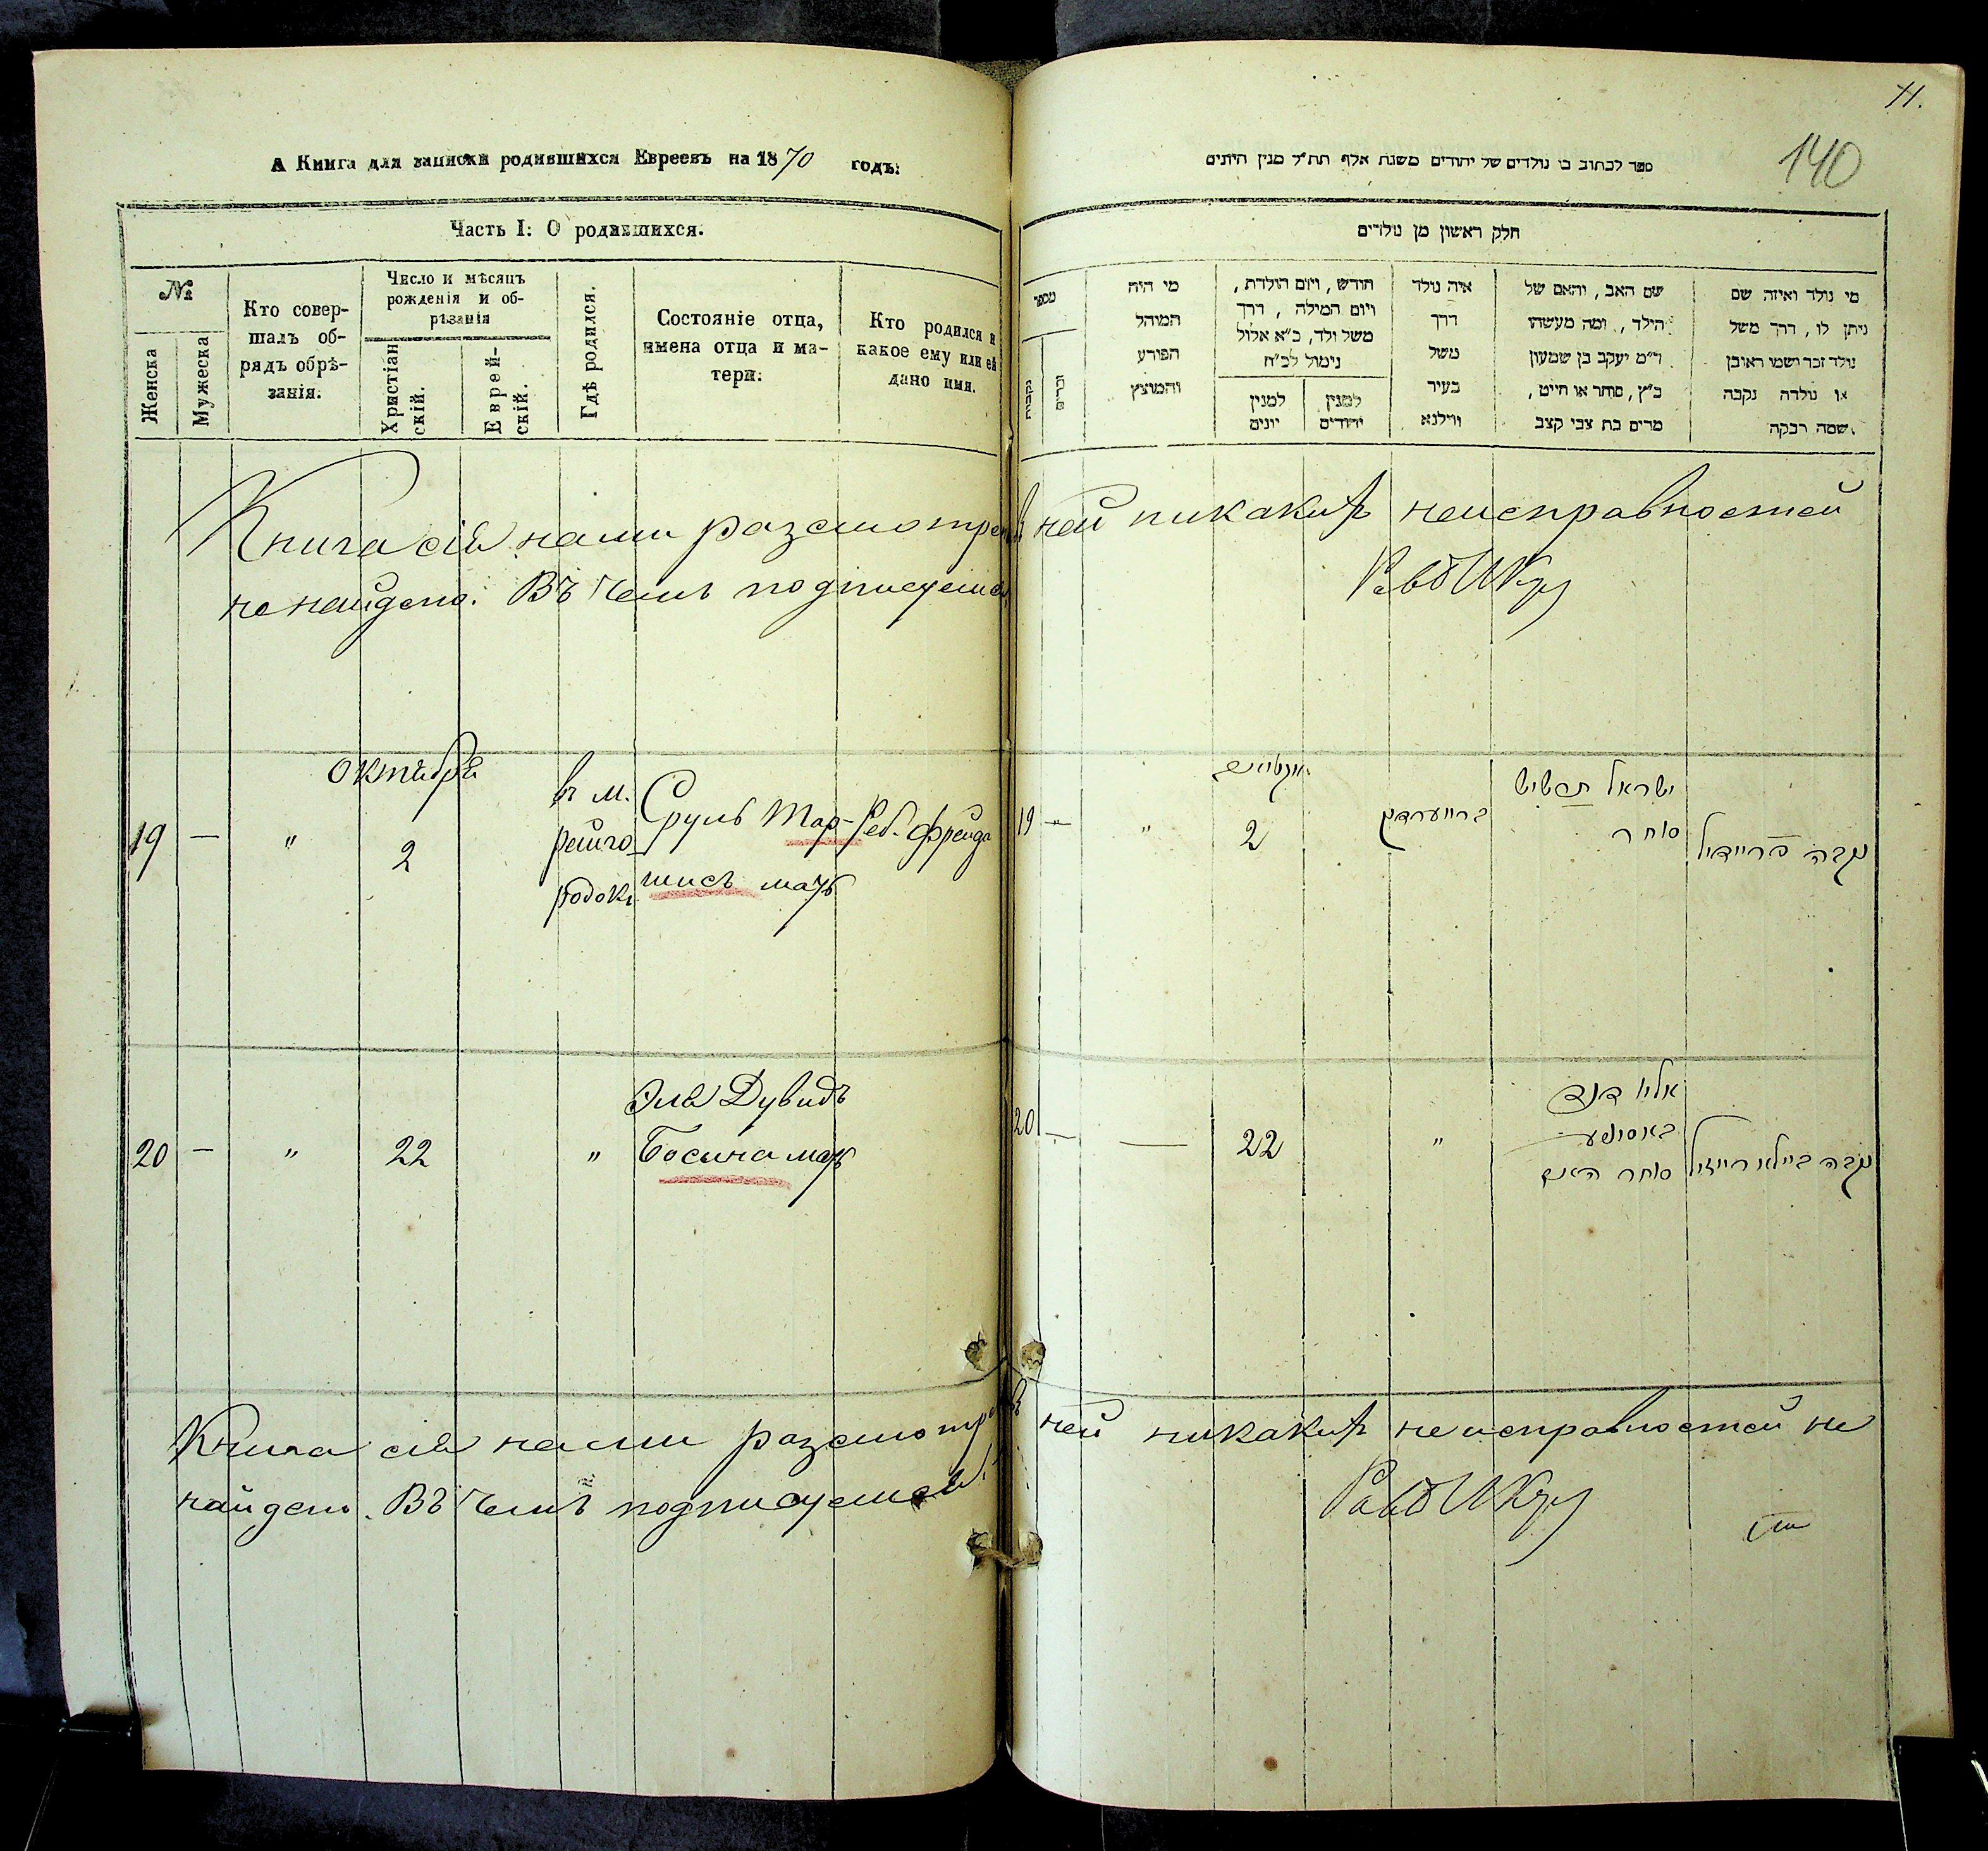 А Книга для записки родившихся Евреевъ на 1870 годъ:
Часть I: О родившихся.
№
Женска
Мужеска
Кто совер-
шалъ об-
рядъ обрѣ-
занія.
Число и мѣсяцъ
рожденія и об-
рѣзанія
Христіан
скій.
Еврей-
скій.
Гдѣ родился.
Состояніе отца,
имена отца и ма-
тери.
Кто родился и
какое ему или ей
дано имя.
Книга сія нами разсмотрен
не найдено. Въ чемъ подписуемся
октября
19 — " 2
въ м.
райго
родокъ
Сруль Тар-
шисъ мать
Реб. Фрейда
20 — " 22 "
Эля Дувидъ
Босина мать
Книга сія нами разсмотре
найдено. Въ чемъ подписуемся
11.
140
ספר לכתוב בו נולדים של יהודים משנת אלף תת״ל מנין היונים
חלק ראשון מן נולדים
מספר
נקבות
זכרים
מי היה
המוהל
הפורע
והמוצץ
חודש, ויום הולדת,
ויום המילה, דרך
משל ולד, כ״א אלול
נימול לכ״ח
למנין
יונים
למנין
יהודים
איה נולד
דרך
משל
בעיר
ווילנא
שם האב, והאם של
הילד, ומה מעשהו
ר״מ יעקב בן שמעון
כ״ץ, סוחר או חייט,
מרים בת צבי קצב
מי נולד ואיזה שם
ניתן לו, דרך משל
נולד זכר ושמו ראובן
או נולדה נקבה
שמה רבקה.
в ней никакихъ неисправностей
19 — " 2
ישראל תרשיש
סוחר
נקבה פריידיל
20 — — 22 "
אליו דוד
סוחר
נקבה ביילא רייזיל
въ ней никакихъ неисправностей не